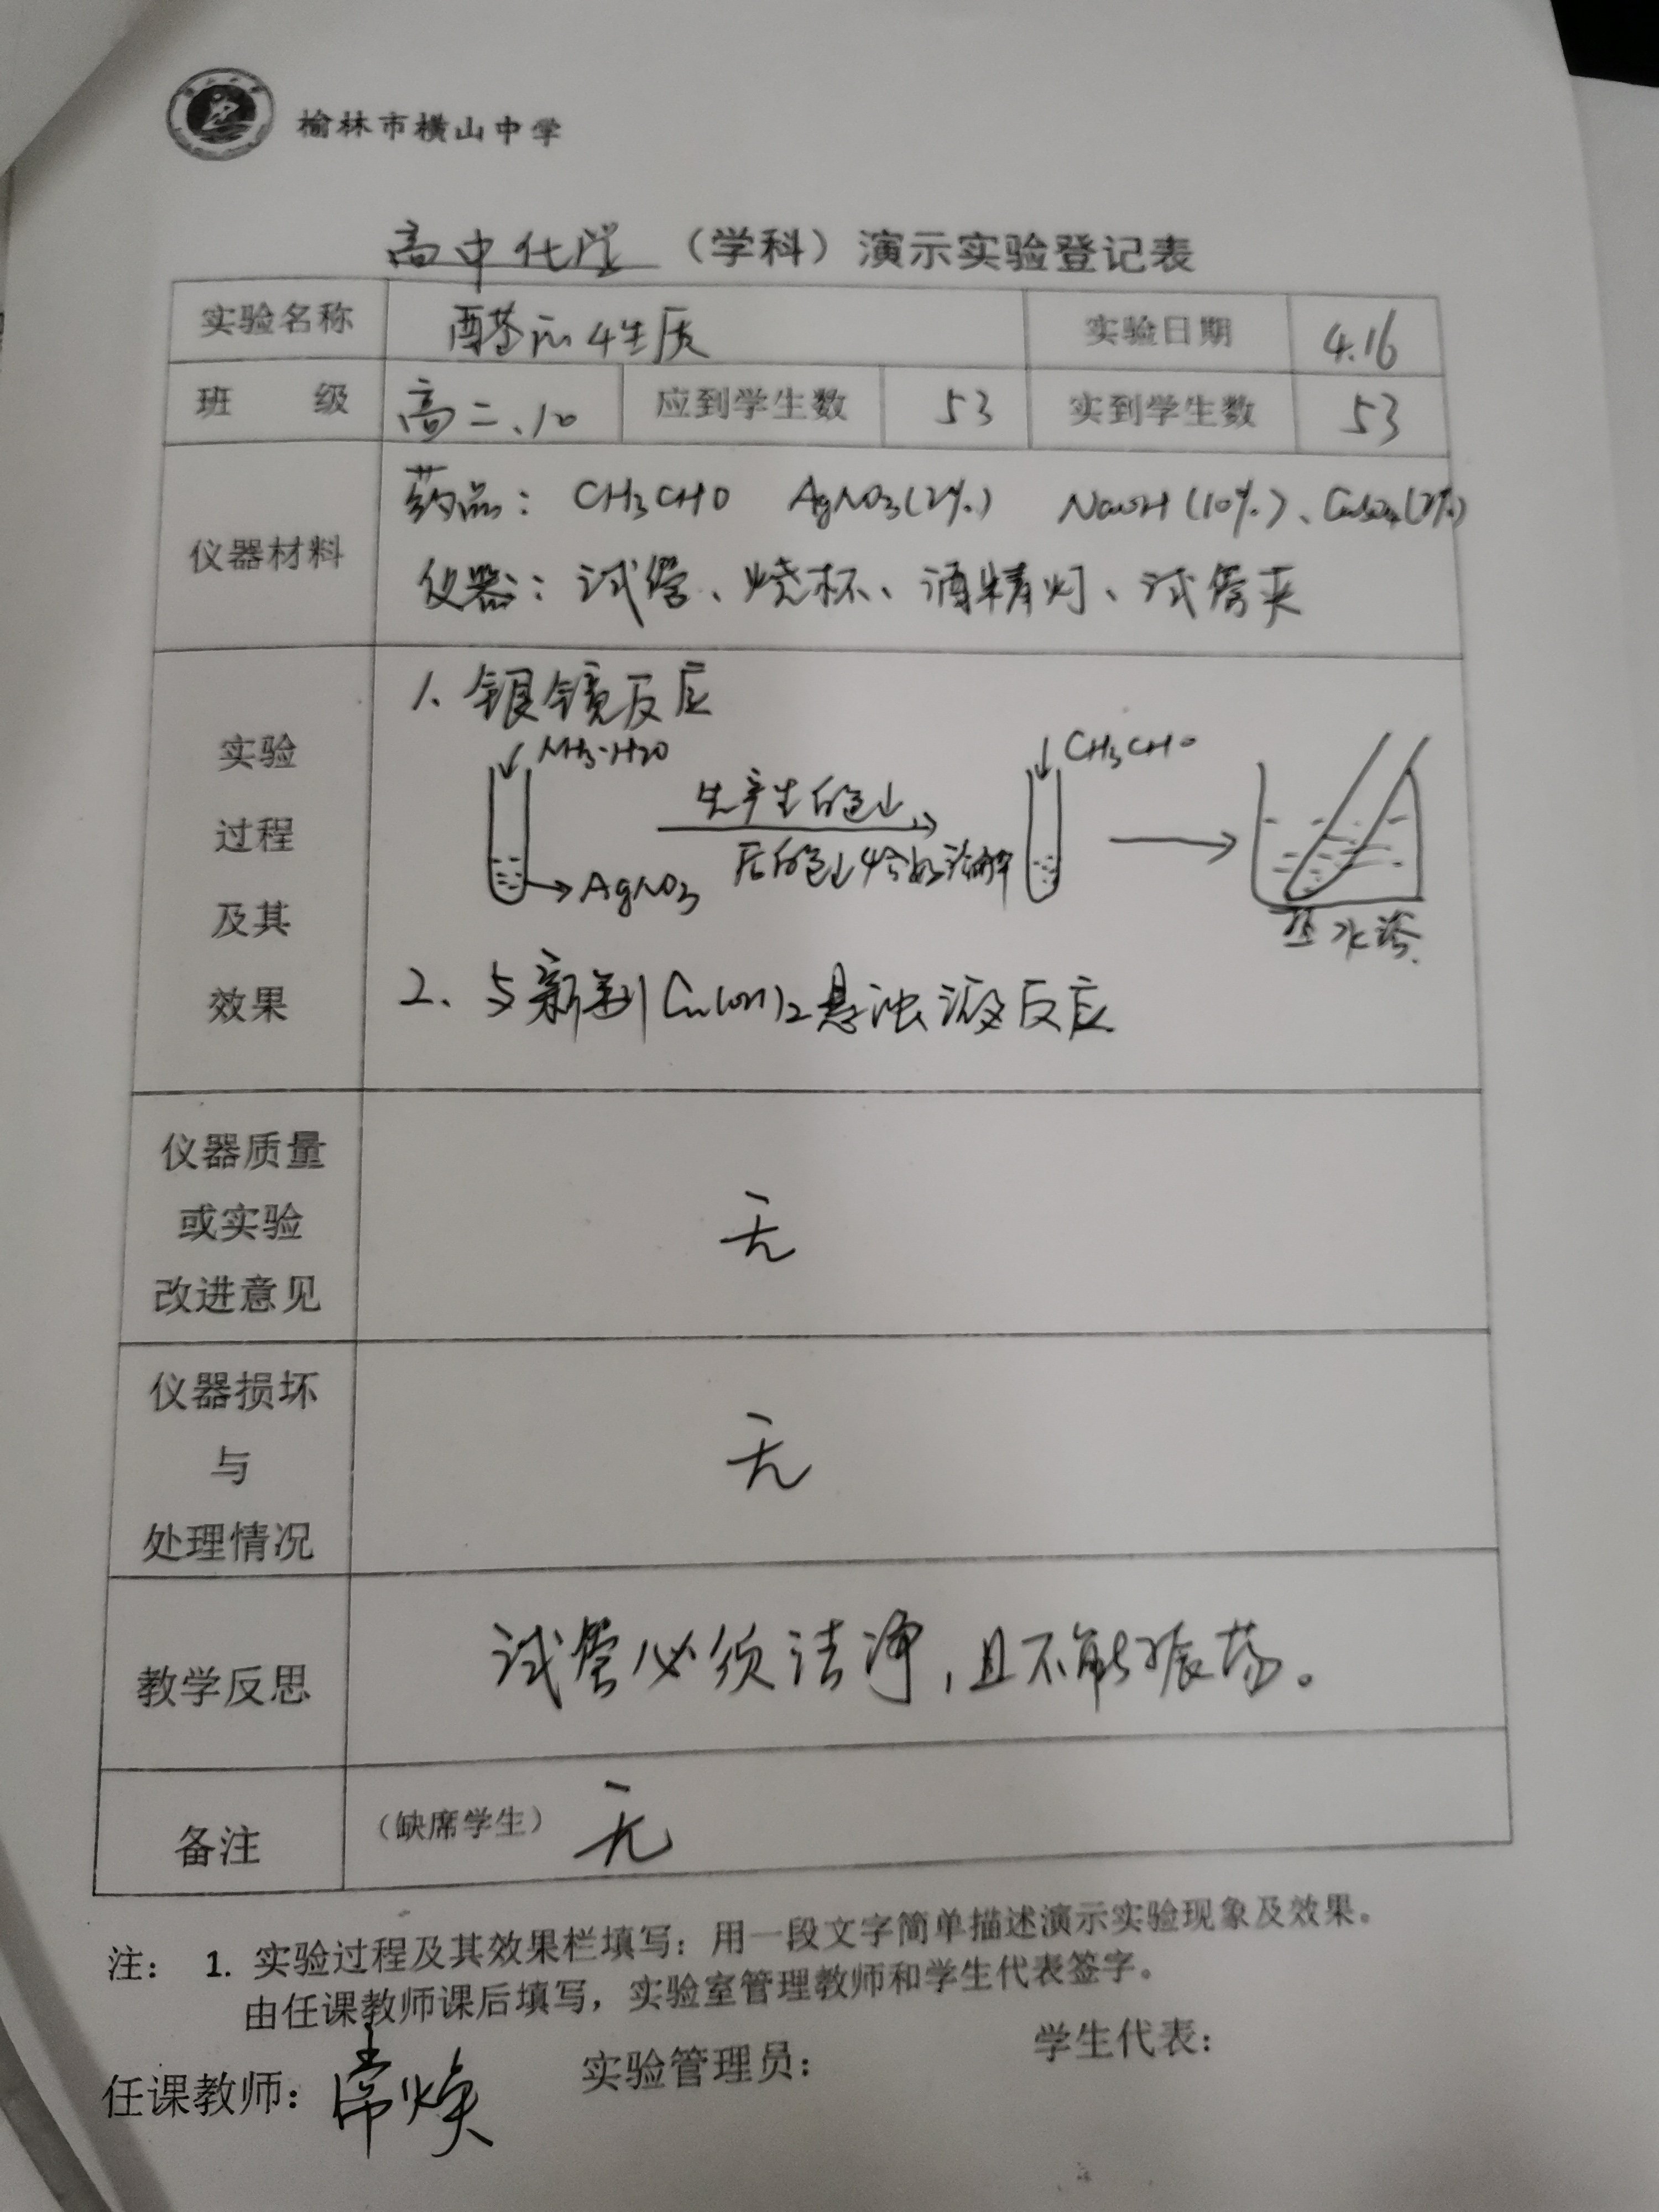 榆林市横山中学
高中化学（学科）演示实验登记表
实验名称 醛的性质 实验日期 4.16
班 级 高二、10 应到学生数 53 实到学生数 53
仪器材料
药品：CH3CHO AgNO3(2%) NaOH(10%)、CuSO4(2%)
仪器：试管、烧杯、酒精灯、试管夹
实验
过程
及其
效果
1、银镜反应
NH3·H2O
AgNO3
生产生白色↓
后白色↓恰好溶解
CH3CHO
水浴
2、与新制Cu(OH)2悬浊液反应
仪器质量
或实验
改进意见
无
仪器损坏
与
处理情况
无
教学反思
试管必须洁净，且不能振荡。
备注
（缺席学生） 无
注： 1. 实验过程及其效果栏填写：用一段文字简单描述演示实验现象及效果。
由任课教师课后填写，实验室管理教师和学生代表签字。
任课教师：常焕 实验管理员： 学生代表：